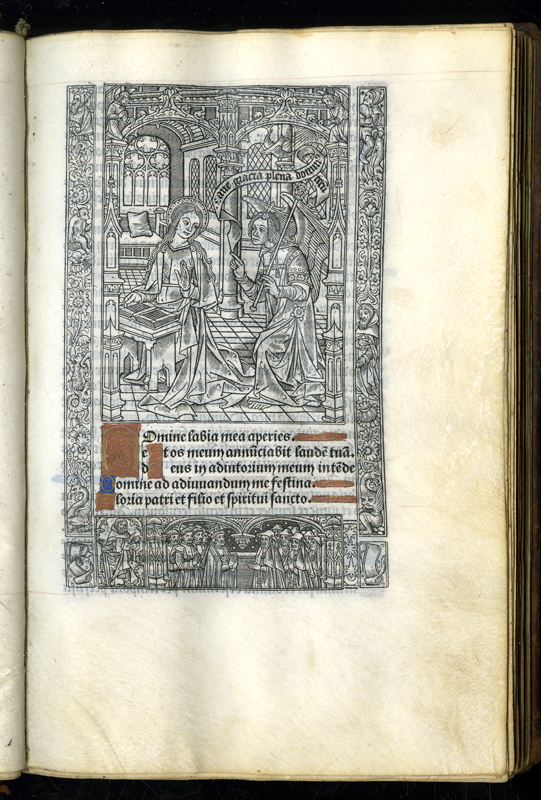 aue gracia plena domin
Domine labia mea aperies.
et os meum annūciabit laudē tuā.
deus in adiutorium meum intēde
Domine ad adiuuandum me festina.
Gloria patri et filio et spiritui sancto.